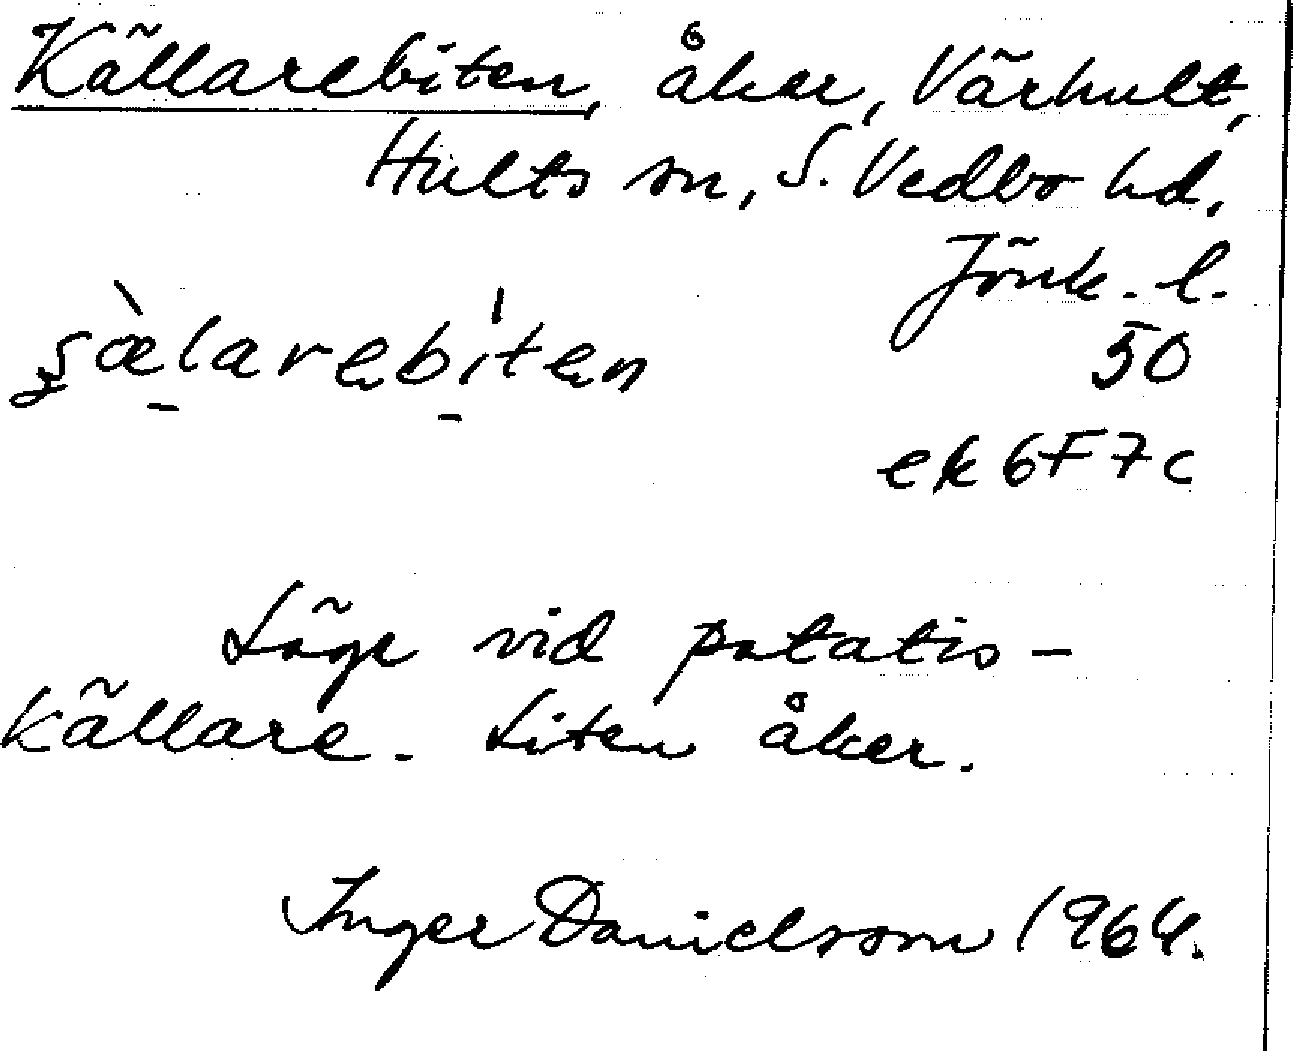 Källarebiten, åker, Värhult,
Hults sn, S. Vedbo hd,
Jönk. l.
ʂæ̀larebíten
50
ek 6F7c
Läge vid potatis-
källare. Liten åker.
Inger Danielsson 1964.